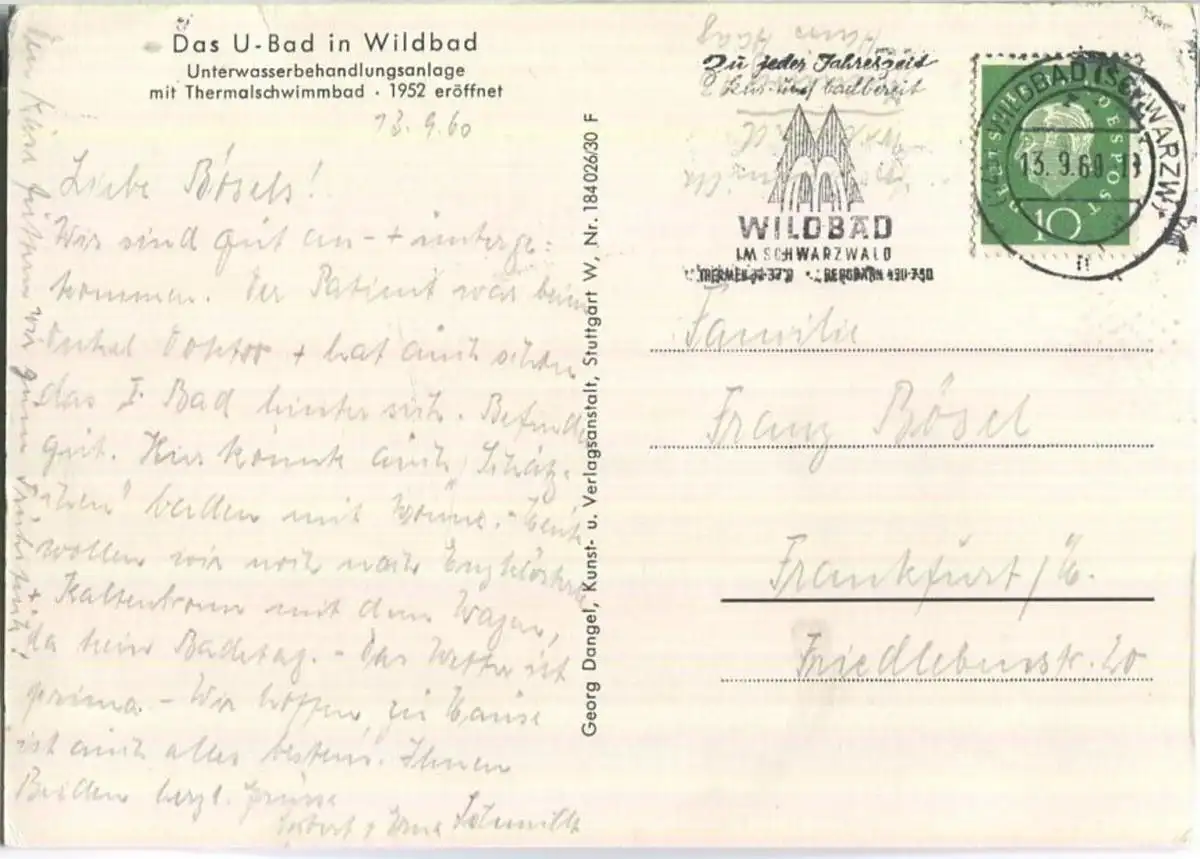 Das U-Bad in Wildbad
Unterwasserbehandlungsanlage
mit Thermalschwimmbad · 1952 eröffnet
13.9.60
Liebe Bösels!
Wir sind gut an- + unterge-
kommen. Der Patient war beim
Onkel Doktor + hat auch schon
das I. Bad hinter sich. Befinden
gut. Hier könnte auch „Schätz-
chen" baden mit Wonne. - Heute
wollen wir noch nach Enzklösterle
+ Kaltenbronn mit dem Wagen,
da kein Badetag. - Das Wetter ist
prima - Wir hoffen, zu Hause
ist auch alles bestens. Ihnen
Beiden herzl. Grüsse
Schmidt
wir zum Frühstück!
Georg Dangel, Kunst- u. Verlagsanstalt, Stuttgart W, Nr. 184026/30 F
Zu jeder Jahreszeit
kur- und badbereit
WILDBAD
IM SCHWARZWALD
THERMEN BERGBAHN 430-750
WILDBAD (SCHWARZW)
13.9.60
DEUTSCHE BUNDESPOST
10
Familie
Franz Bösel
Frankfurt/M.
Friedlebenstr. 20